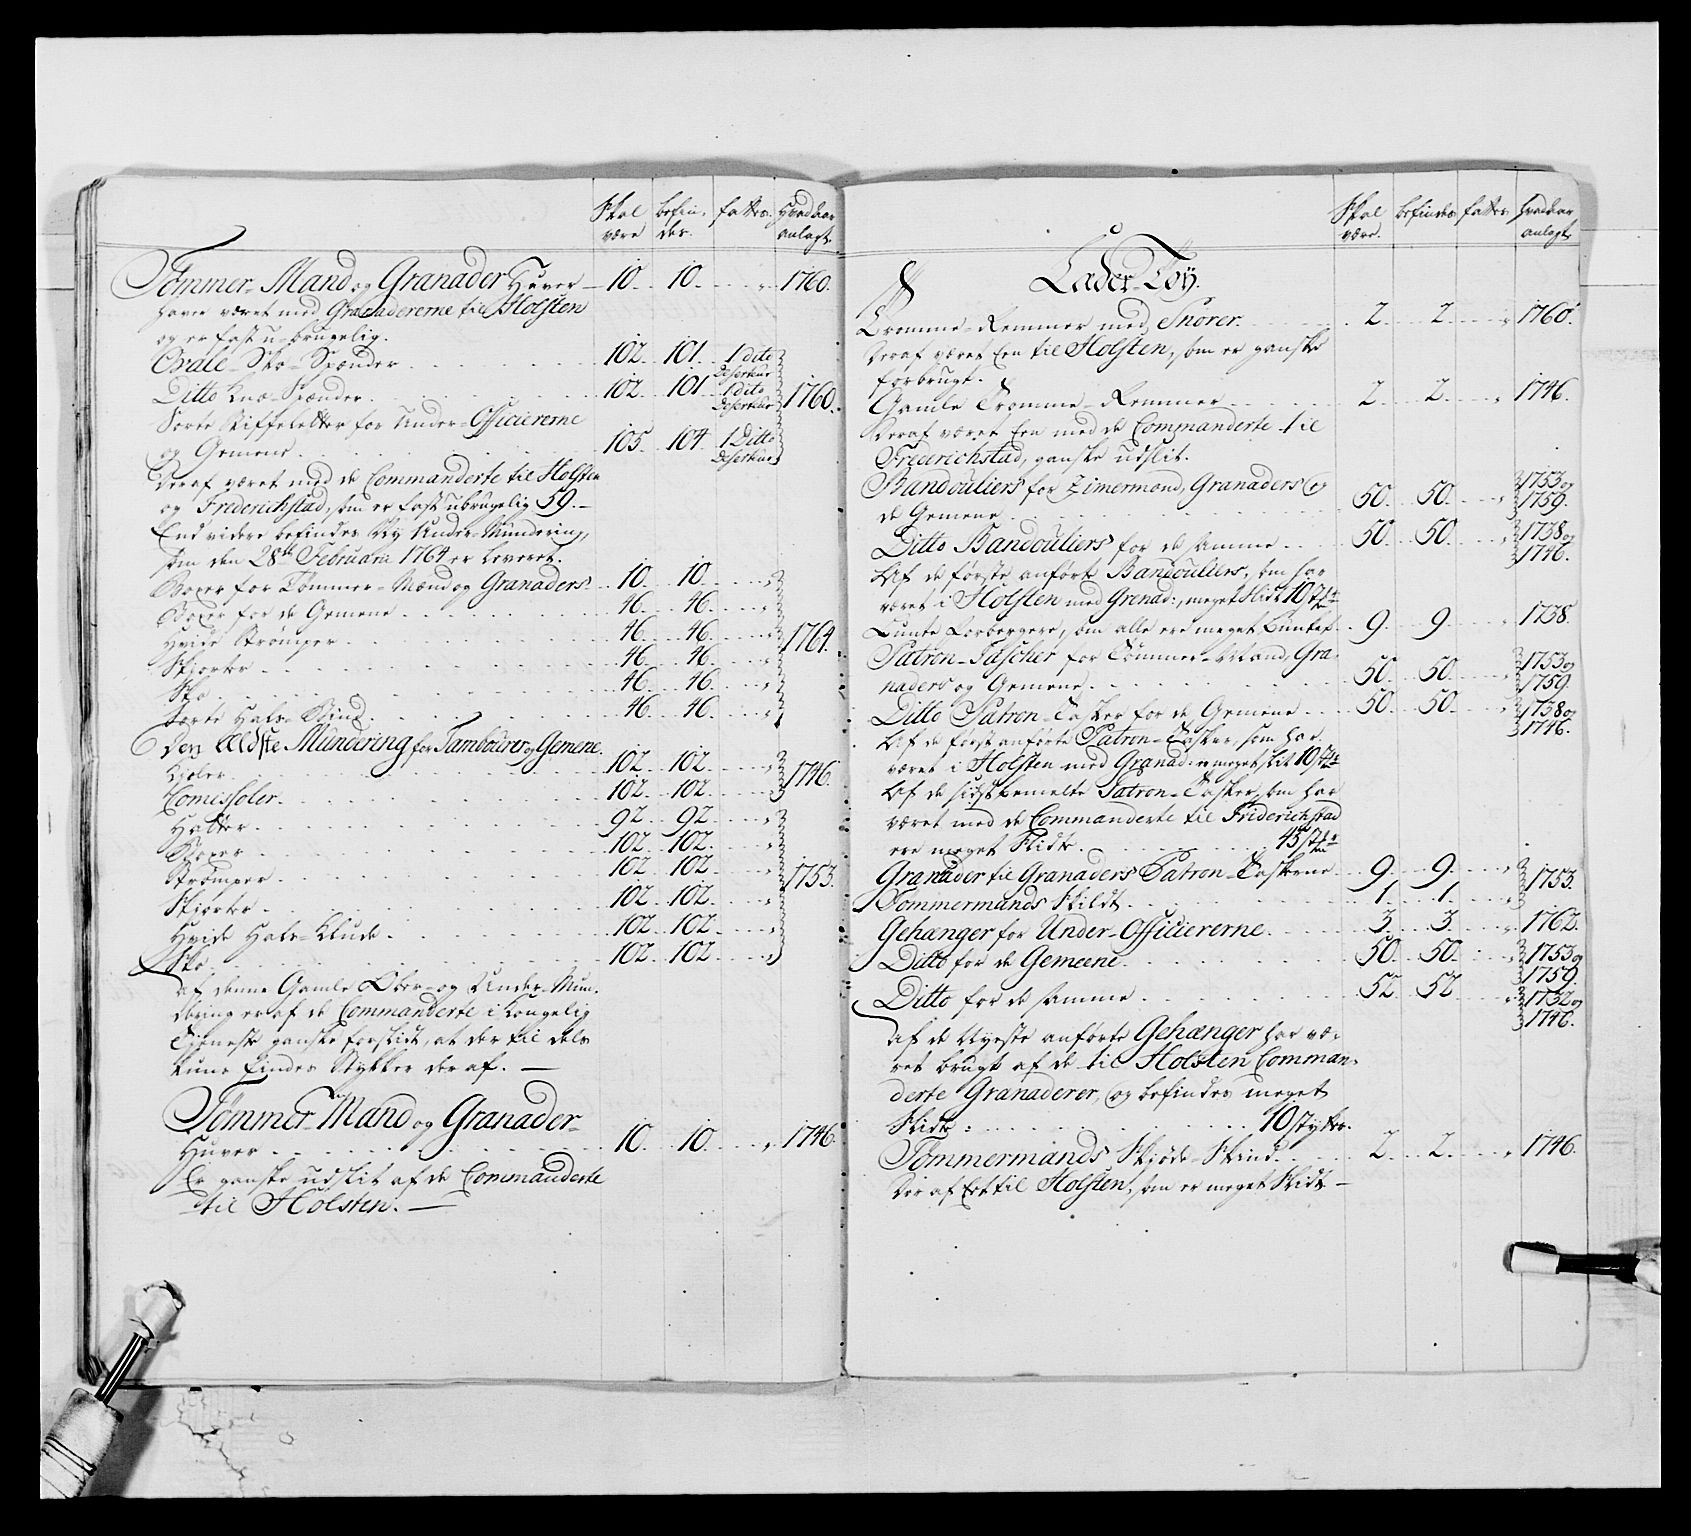 Skal befin- fattes. Hvad aar
være des. anlagt.
Tømmer-Mand og Granader Huver 10. 10. „ 1760.
haver været med Granadererne til Holsten
og er fast u-brugelig.
Ovale Sko-Spænder 102. 101. 1 dito
Deserteur
Ditto Knæ-Spænder 102. 101 1 dito 1760.
Deserteur
Sorte Stiffeletter for Under-Officiererne
og Gemene 105. 104. 1 Ditto
Deserteur
Deraf været med de Commanderte til Holsten
og Frederichstad, som er fast ubrugelig 59.
End videre befindes Ny Under-Mundering,
som den 28de Februarii 1764 er leveret.
Boxer for Tømmer-Mænd og Granaders 10. 10. „
Boxer for de Gemene 46. 46. „
Hvide Strømper 46. 46. „ 1764.
Skiorter 46. 46. „
Sko 46. 46. „
Sorte Hals-Bind 46. 46. „
Den Ældste Mundering for Tambourer og Gemene.
Kjoler 102. 102. „ 1746.
Comissoler. 102. 102. „
Hatter 92. 92. „
Boxer 102. 102. „
Strømper 102. 102. „ 1753.
Skjorter 102. 102. „
Hvide Hals-Klude 102. 102. „
Sko 102. 102. „
af denne Gamle Ober- og Under-Mun-
dering er af de Commanderte i Kongelig
Tieneste ganske forslidt, at der til dels
kuns findes Stykker der af.
Tømmer-Mand og Granader-
Huver 10. 10. „ 1746.
Er ganske udslit af de Commanderte
til Holsten.
Skal befindes fattes Hvad aar
være. anlagt.
Læder-Tøy.
Tromme-Remmer med Snorer. 2. 2. „ 1760.
Deraf været Een til Holsten, som er ganske
forbrugt.
Gamle Tromme-Remmer 2. 2. „ 1746.
Deraf været Een med de Commanderte til
Frederichstad, ganske udslit.
Bandouliers for Zimermænd, Granaders og 1753 og
de Gemene 50. 50. „ 1759.
Ditto Bandouliers for de samme 50. 50. „ 1738 og
1746.
Af de første anførte Bandouliers, som har
været i Holsten med Grenad:, meget Slidt 10 Stk
Lunte Forbergere, som alle ere meget 9. 9. „ 1738.
Patron-Tascher for Tømmer-Mand, Gra- 1753 og
naders og Gemene 50. 50. „ 1759.
Ditto Patron-Tasker for de Gemene 50. 50. „ 1738 og
1746.
Af de først anførte Patron-Tasker, som har
været i Holsten med Granad: er meget slit 10 Stk
Af de sidstbemelte Patron-Tasker, som har
været med de Commanderte til Friderichstad
ere meget Slidt 45 Stk
Granader til Granaders Patron-Taskerne 9. 9. „ 1753.
Tømmermands Skildt 1. 1. „
Gehænger for Under-Officiererne 3. 3. „ 1762.
Ditto for de Gemeene 50. 50. „ 1753 og
1759
Ditto for de samme 52. 52 „ 1732 og
1746.
Af de Nyeste anførte Gehænger har væ-
ret brugt af de til Holsten Comman-
derte Granaderer, og befindes meget
Slidt: 10 stykker.
Tømmermands Skjøde-Skind 2. 2. „ 1746.
Der af Eet til Holsten, som er meget Slidt